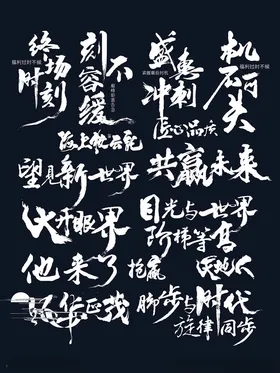 终场时刻
福利过时不候
刻不容缓
盛惠冲刺
紧握最后时机
机不可失
福利过时不候
匠心品质
望见新世界
共赢未来
大开眼界
目光与世界
阶梯等高
他来了
抢赢
天地人
风华正茂
脚步与时代
旋律同步